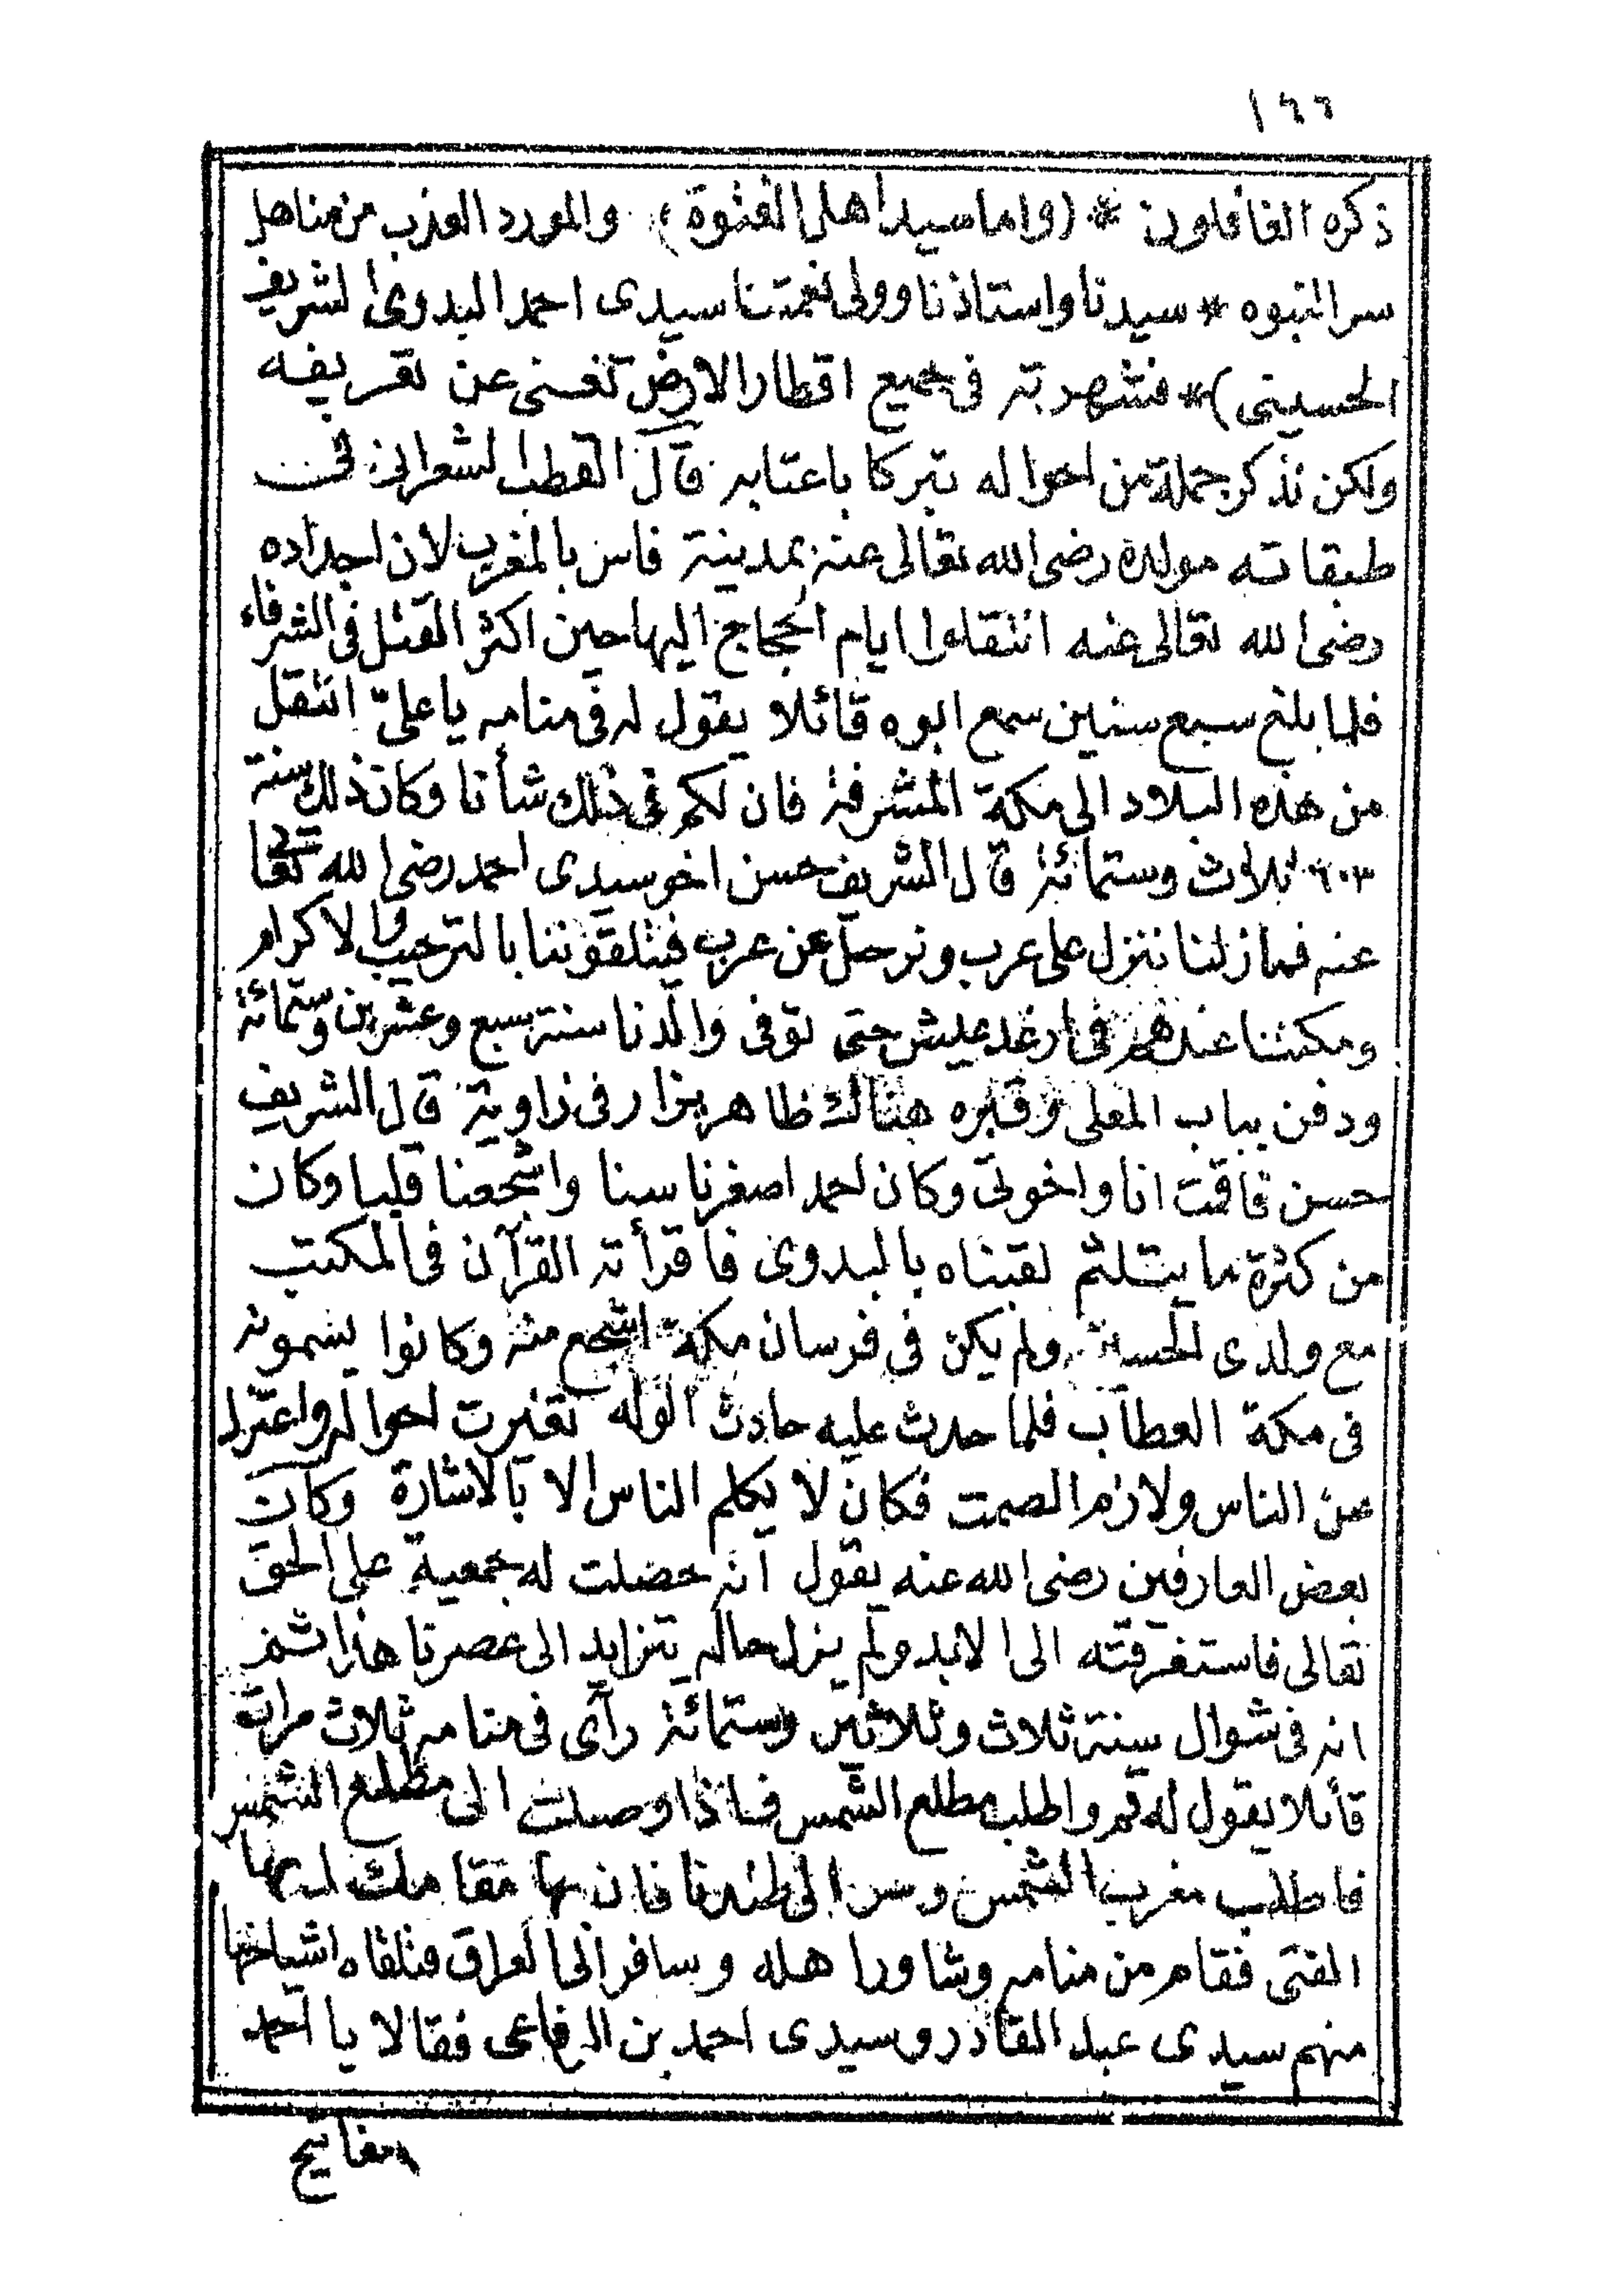 ١٦٦
ذكره الغافلون * (واما سيد اهل الفتوة) والمورد العذب من مناهل
سر النبوه * سيدنا واستاذنا وولى نعمتنا سيدى احمد البدوى الشريف
الحسينى) * فشهرته فى جميع اقطار الارض تغنى عن تعريفه
ولكن نذكر جملة من احواله تبركا باعتابه قال القطب الشعرانى فى
طبقاته مولده رضى الله تعالى عنه بمدينة فاس بالمغرب لان اجداده
رضى الله تعالى عنه انتقلوا ايام الحجاج اليها حين اكثر القتل فى الشرفاء
فلما بلغ سبع سنين سمع ابوه قائلا يقول له فى منامه يا علىّ انتقل
من هذه البلاد الى مكة المشرفة فان لكم فى ذلك شأنا وكان ذلك سنة
٦٠٣ ثلاث وستمائة قال الشريف حسن اخو سيدى احمد رضى الله تعالى
عنه فما زلنا ننزل على عرب ونرحل عن عرب فيتلقوننا بالترحيب والاكرام
ومكثنا عندهم فى ارغد عيش حتى توفى والدنا سنة سبع وعشرين وستمائة
ودفن بباب المعلى وقبره هناك ظاهر يزار فى زاوية قال الشريف
حسن فاقمت انا واخوتى وكان احمد اصغرنا سنا واشجعنا قلبا وكان
من كثرة ما يتلثم لقبناه بالبدوى فاقرأته القرآن فى المكتب
مع ولدى الحسين ولم يكن فى فرسان مكة اشجع منه وكانوا يسمونه
فى مكة العطاب فلما حدث عليه حادث الوله تغيرت احواله واعتزل
عن الناس ولازم الصمت فكان لا يكلم الناس الا بالاشارة وكان
بعض العارفين رضى الله عنه يقول انه حصلت له جمعية على الحق
تعالى فاستغرقته الى الابد ولم يزل حاله يتزايد الى عصرنا هذا ثم
انه فى شوال سنة ثلاث وثلاثين وستمائة رآى فى منامه ثلاث مرات
قائلا يقول له قم واطلب مطلع الشمس فاذا وصلت الى مطلع الشمس
فاطلب مغرب الشمس وسر الى طندتا فان بها مقامك ايها
الفتى فقام من منامه وشاور اهله وسافر الى العراق فتلقاه اشياخها
منهم سيدى عبد القادر وسيدى احمد بن الرفاعى فقالا يا احمد
مفاتيح